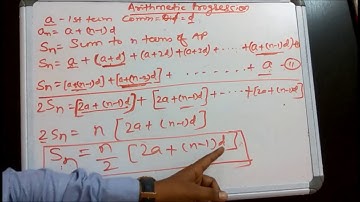 Arithmetic Progression
a - 1st term Common = d
aₙ = a+(n-1)d
Sₙ = Sum to n terms of AP
Sₙ = a + (a+d) + (a+2d) + (a+3d) + ..... + (a+(n-1)d)
Sₙ = [a+(n-1)d] + [a+(n-2)d] + ........ + a - (11)
2Sₙ = [2a+(n-1)d] + [2a+(n-1)d] + ----- + [2a+(n-1)d]
2Sₙ = n [2a+(n-1)d]
Sₙ = n/2 [2a+(n-1)d]